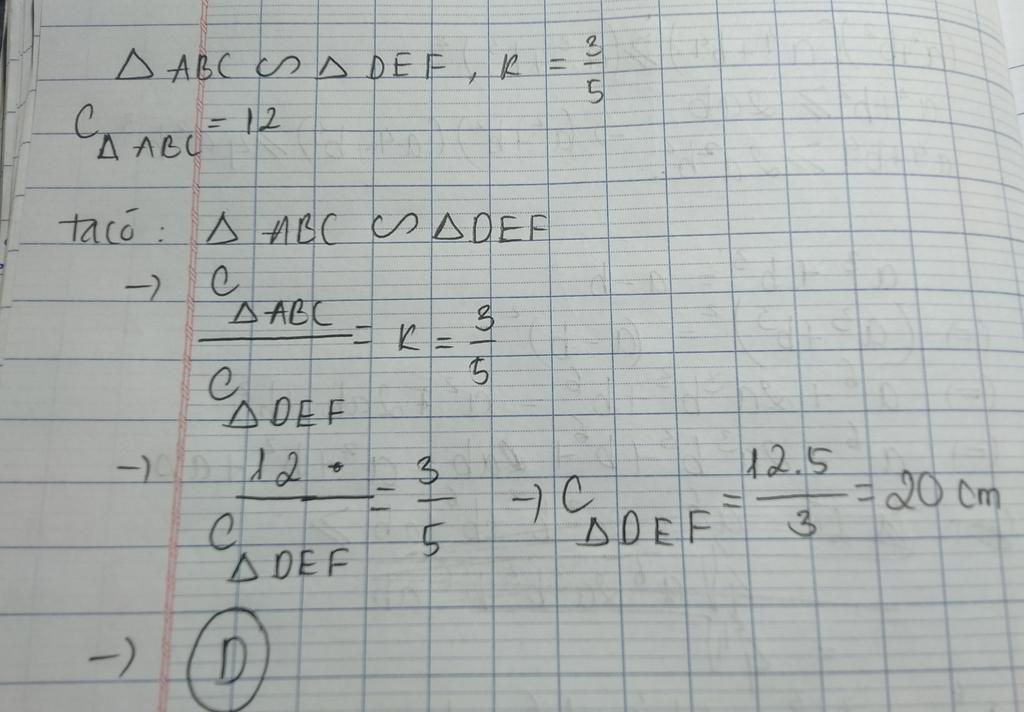 Δ ABC ∽ Δ DEF, K = 3/5
C Δ ABC = 12
ta có : Δ ABC ∽ Δ DEF
→ C Δ ABC / C Δ DEF = K = 3/5
→ 12 / C Δ DEF = 3/5 → C Δ DEF = 12.5/3 = 20 cm
→ D